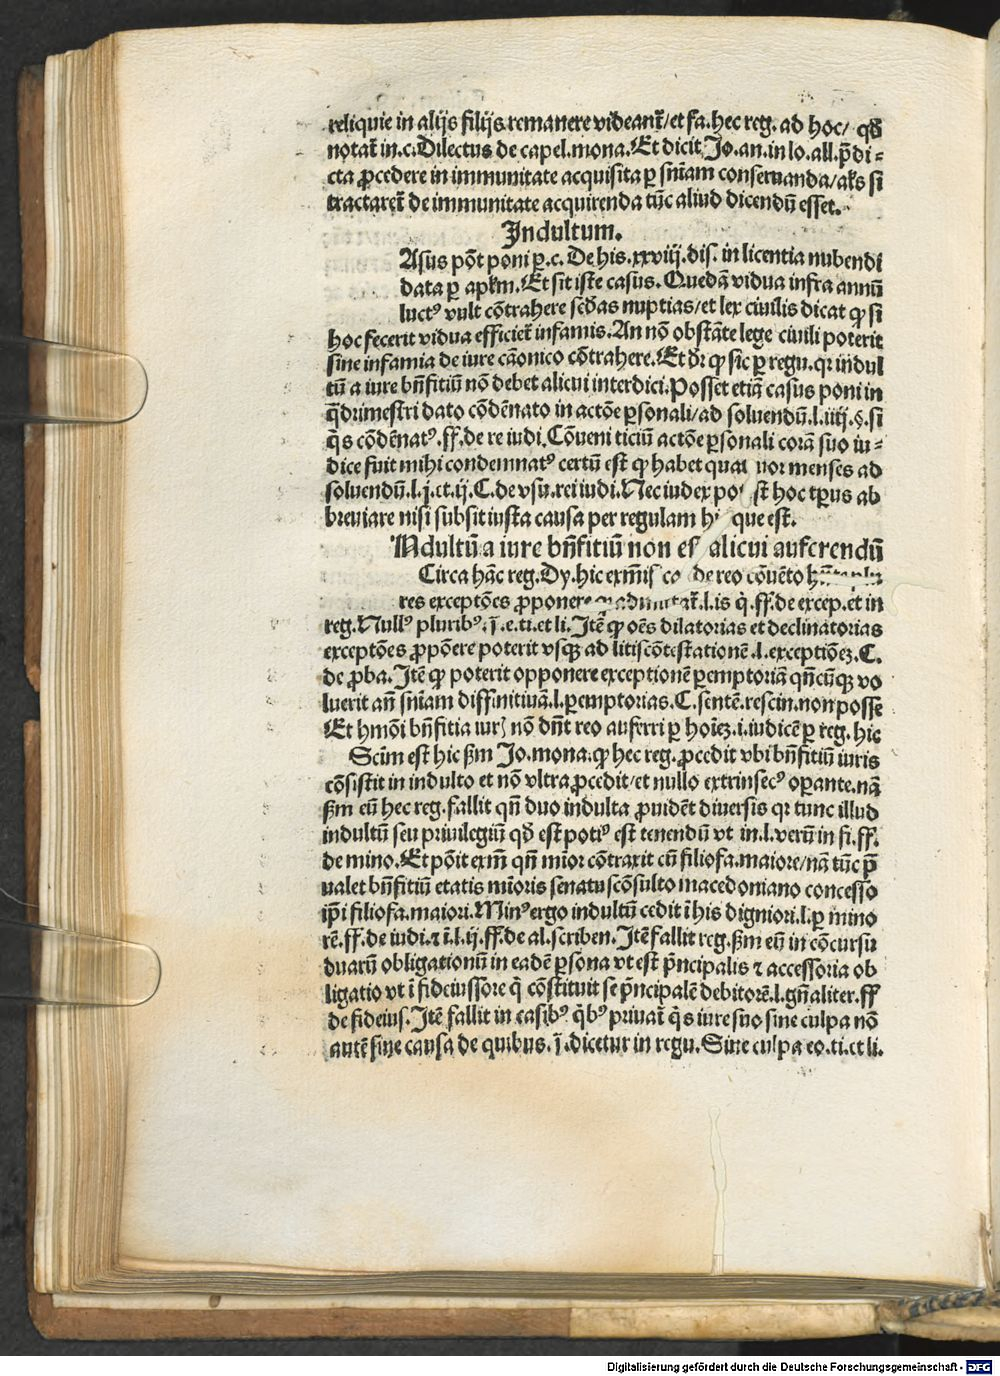 reliquie in alijs filijs remanere videant᷑/et fa.hec reg. ad hoc/ qđ
notat᷑ in.c.Dilectus de capel.mona.Et dicit Jo.an.in lo.all.p̄di⸗
cta ꝓcedere in immunitate acquisita ꝑ sn̄iam conseruanda/ał̓s si
tractaret᷑ de immunitate acquirenda tūc aliud dicendū esset.
Indultum.
Asus pōt poni ꝑ.c. De his.xxviij.dis. in licentia nubendi
data ꝑ apł̓m.Et sit iste casus. Quedā vidua infra annū
luctꝰ vult cōtrahere scđas nuptias/et lex ciuilis dicat ꝙ si
hoc fecerit vidua efficiet᷑ infamis.An nō obstāte lege ciuili poterit
sine infamia de iure cāonico cōtrahere.Et dr̄ ꝙ sic ꝑ regu.qꝛ indul
tū a iure bn̄fitiū nō debet alicui interdici.Posset etiā casus poni in
q̄drimestri dato cōdēnato in actōe ꝑsonali/ad soluendū.l.iiij.§.si
q̄s cōdēnatꝰ.ff.de re iudi.Cōueni ticiū actōe ꝑsonali corā suo iu⸗
dice fuit mihi condemnatꝰ certū est ꝙ habet quat nor menses ad
soluendū.l.j.et.ij.C.de vsu.rei iudi.Nec iudex po st hoc tp̄us ab
breuiare nisi subsit iusta causa per regulam hi que est.
Ndultū a iure bn̄fitiū non es alicui auferendū
Circa hāc reg.Dy.hic exm̄is co de reo cōuēto
res exceptōes ꝓponere admittat᷑.l.is q̄.ff.de excep.et in
reg.Nullꝰ pluribꝰ.j̄.e.ti.et li.Itē ꝙ oēs dilatorias et declinatorias
exceptōes ꝓpōere poterit vsqꝫ ad litiscōtestationē.l.exceptiōeꝫ.C.
de ꝓba.Itē ꝙ poterit opponere exceptionē ꝑemptoriā qn̄cūqꝫ vo
luerit an̄ sn̄iam diffinitiuā.l.ꝑemptorias.C.sentē.rescin.non posse
Et hmōi bn̄fitia iurꝭ nō dn̄t reo auferri ꝑ hoīeꝫ.i.iudicē ꝑ reg.hic
Scīm est hic ẜm Jo.mona.ꝙ hec reg.ꝓcedit vbi bn̄fitiū iuris
cōsistit in indulto et nō vltra ꝓcedit/et nullo extrinsecꝰ oꝑante.nā
ẜm eū hec reg.fallit qn̄ duo indulta ꝓuidēt diuersis qꝛ tunc illud
indultū seu priuilegiū qđ est potiꝰ est tenendū vt in.l.verū in fi.ff.
de mino.Et pōit exm̄ qn̄ mīor cōtraxit cū filiofa.maiore/nā tūc p̄
ualet bn̄fitiū etatis mīoris senatuscōsulto macedoniano concesso
ip̄i filiofa.maiori.Minꝰ ergo indultū cedit ī his digniori.l.ꝑ mino
rē.ff.de iudi.⁊ ī.l.ij.ff.de al.scriben.Itē fallit reg.ẜm eū in cōcursu
duarū obligationū in eadē ꝑsona vt est p̄ncipalis ⁊ accessoria ob
ligatio vt ī fideiussore q̄ cōstituit se p̄ncipalē debitorē.l.gn̄aliter.ff
de fideius.Itē fallit in casibꝰ q̄bꝰ priuat᷑ q̄s iure suo sine culpa nō
autē sine causa de quibus.j̄.dicetur in regu.Sine culpa eo.ti.et li.
Digitalisierung gefördert durch die Deutsche Forschungsgemeinschaft - DFG